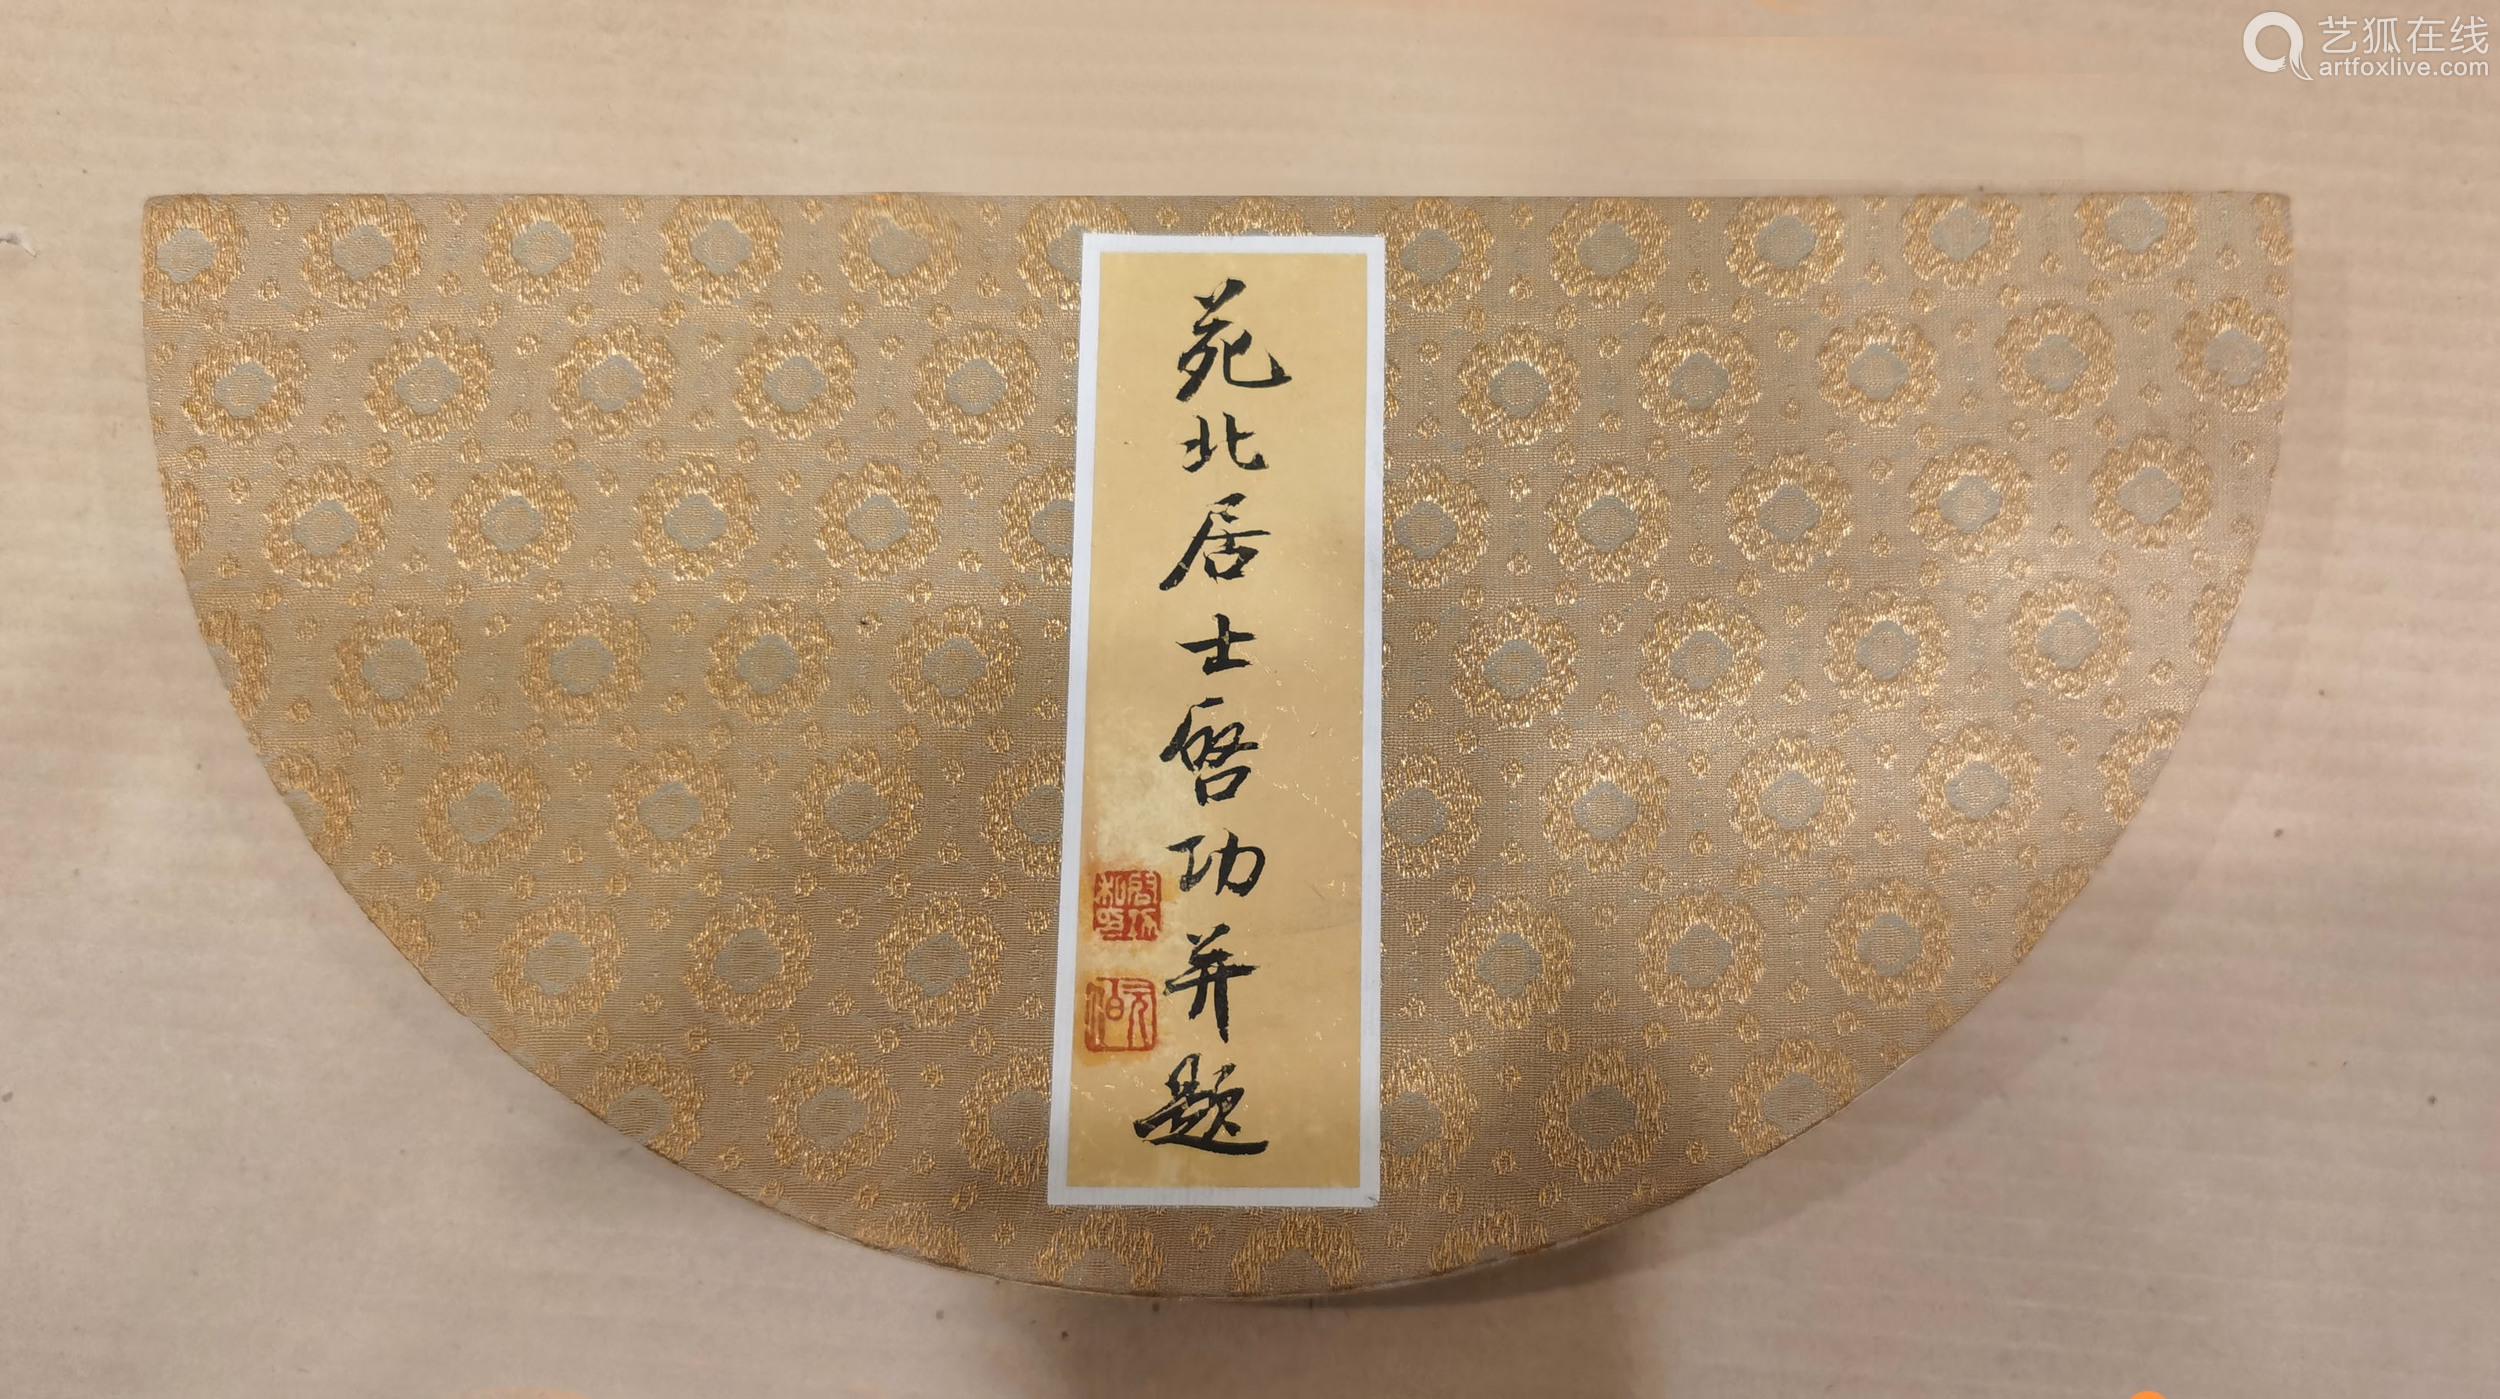 艺狐在线
artfoxlive.com
苑北居士啓功并题